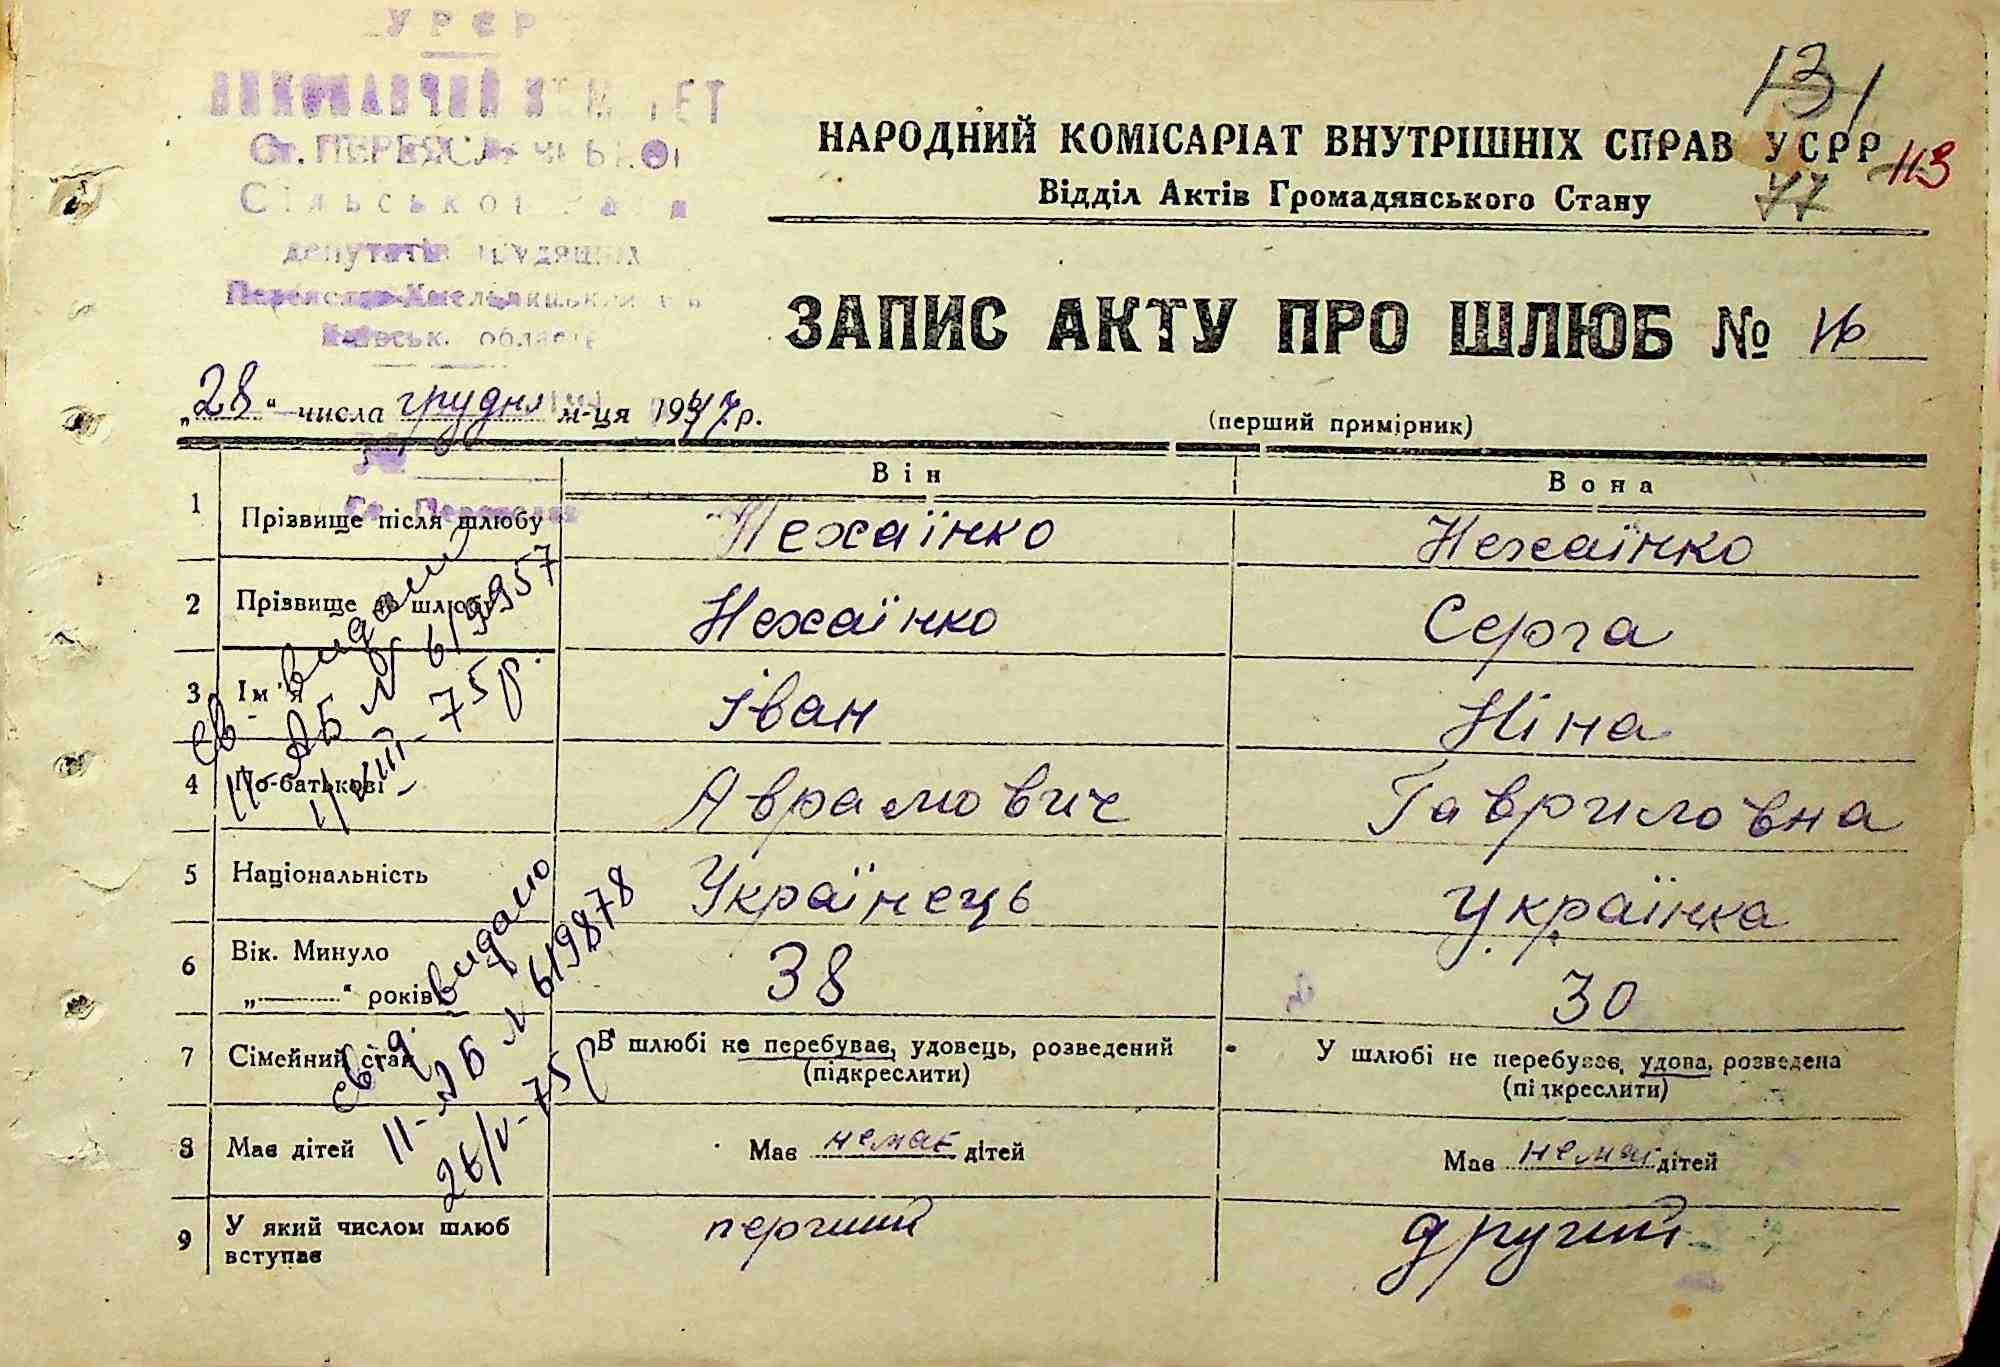 УРСР
ВИКОНАВЧИЙ КОМІТЕТ
Ст. ПЕРЕЯСЛАВСЬКОЇ
Сільської Ради
депутатів трудящих
Переяслав-Хмельницький р-н
Київськ. область
131
НАРОДНИЙ КОМІСАРІАТ ВНУТРІШНІХ СПРАВ УСРР
113
Відділ Актів Громадянського Стану
77
ЗАПИС АКТУ ПРО ШЛЮБ № 16
„28" числа грудня м-ця 1947р.
(перший примірник)
Він
Вона
1 Прізвище після шлюбу Нехаїнко Нехаїнко
2 Прізвище до шлюбу Нехаїнко Серга
3 Ім'я Іван Ніна
4 По-батькові Аврамович Гавриловна
5 Національність Українець Українка
6 Вік. Минуло „ " років 38 30
7 Сімейний стан В шлюбі не перебуває, удовець, розведений У шлюбі не перебуває, удова, розведена
(підкреслити) (підкреслити)
8 Має дітей Має немає дітей Має немає дітей
9 У який числом шлюб вступає перший другий
св видано
II-АБ № 619957
1/VIII-75р.
свид. видано
II-АБ № 619878
26/V-75р